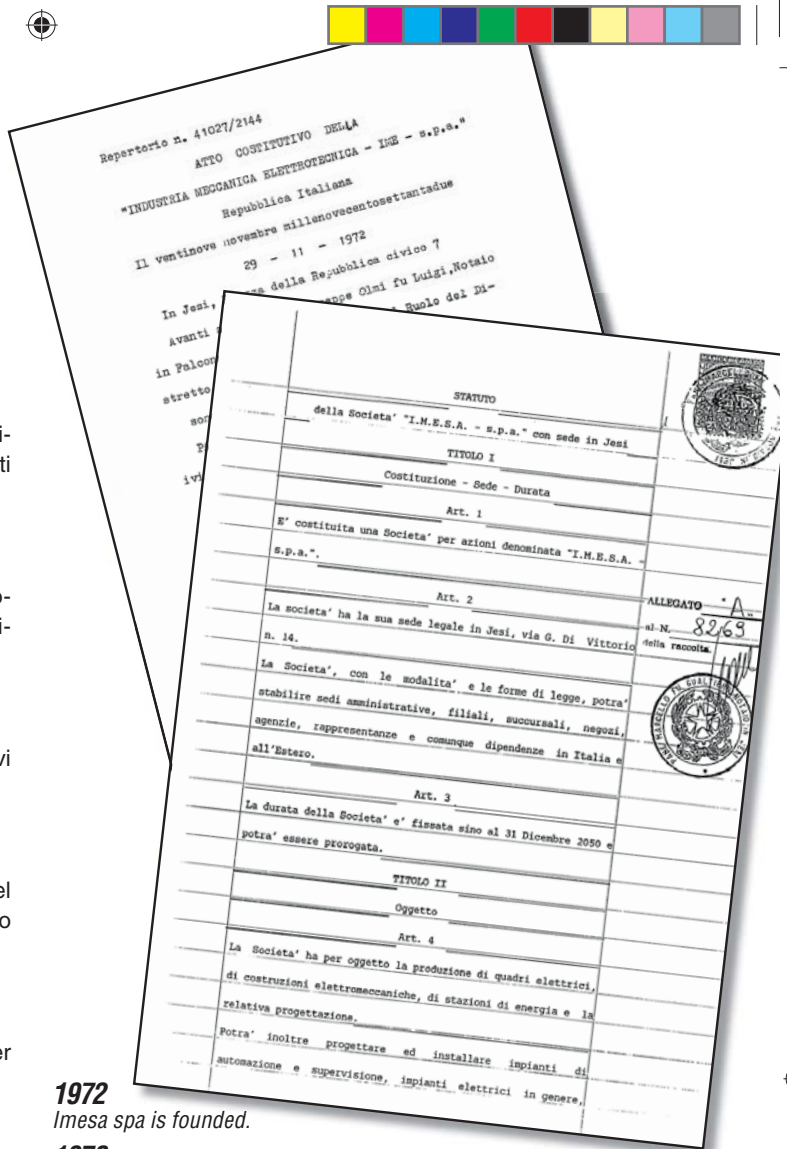 Repertorio n. 41027/2144
ATTO COSTITUTIVO DELLA
"INDUSTRIA MECCANICA ELETTROTECNICA - IME - s.p.a."
Repubblica Italiana
Il ventinove novembre millenovecentosettantadue
29 - 11 - 1972
In Jesi, della Repubblica civico 7
Avanti Olmi fu Luigi, Notaio
in Falcon Ruolo del Di-
stretto
STATUTO
della Societa' "I.M.E.S.A. - s.p.a." con sede in Jesi
TITOLO I
Costituzione - Sede - Durata
Art. 1
E' costituita una Societa' per azioni denominata "I.M.E.S.A. -
s.p.a.".
Art. 2
La societa' ha la sua sede legale in Jesi, via G. Di Vittorio
n. 14.
La Societa', con le modalita' e le forme di legge, potra'
stabilire sedi amministrative, filiali, succursali, negozi,
agenzie, rappresentanze e comunque dipendenze in Italia e
all'Estero.
Art. 3
La durata della Societa' e' fissata sino al 31 Dicembre 2050 e
potra' essere prorogata.
TITOLO II
Oggetto
Art. 4
La Societa' ha per oggetto la produzione di quadri elettrici,
di costruzioni elettromeccaniche, di stazioni di energia e la
relativa progettazione.
Potra' inoltre progettare ed installare impianti di
automazione e supervisione, impianti elettrici in genere,
ALLEGATO "A"
al N. 8269
della raccolta.
i-
ti
o-
i-
vi
el
o
er
1972
Imesa spa is founded.